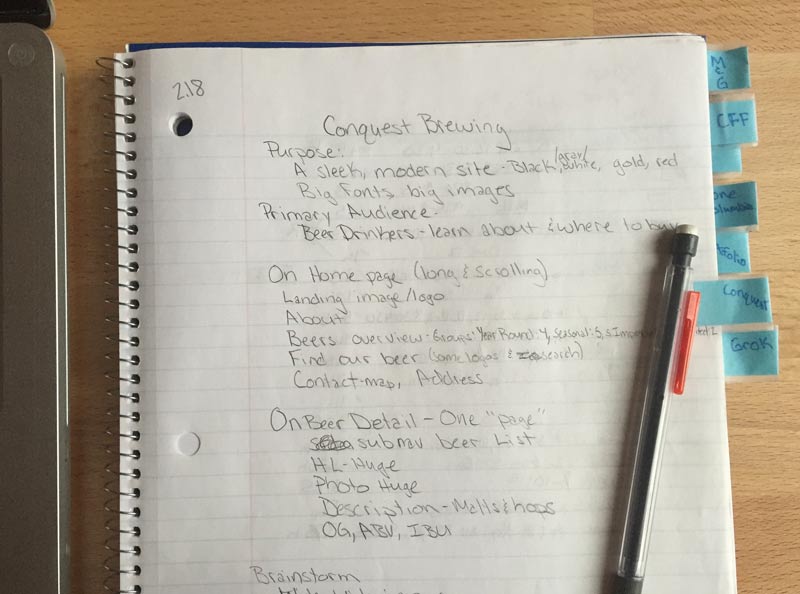 2.18
Conquest Brewing
Purpose:
A sleek, modern site - Black/gray/white, gold, red
Big Fonts big images
Primary Audience-
Beer Drinkers - learn about & where to buy
On Home page (long & scrolling)
Landing image/logo
About
Beers overview - Groups: Year Round: 4, Seasonal: 5,
Find our beer (some logos & search)
Contact-map, Address
On Beer Detail - One "page"
subnav beer List
HL-Huge
Photo Huge
Description - Malts & hops
OG, ABV, IBU
Brainstorm
M & G
CFF
Conquest
Grok